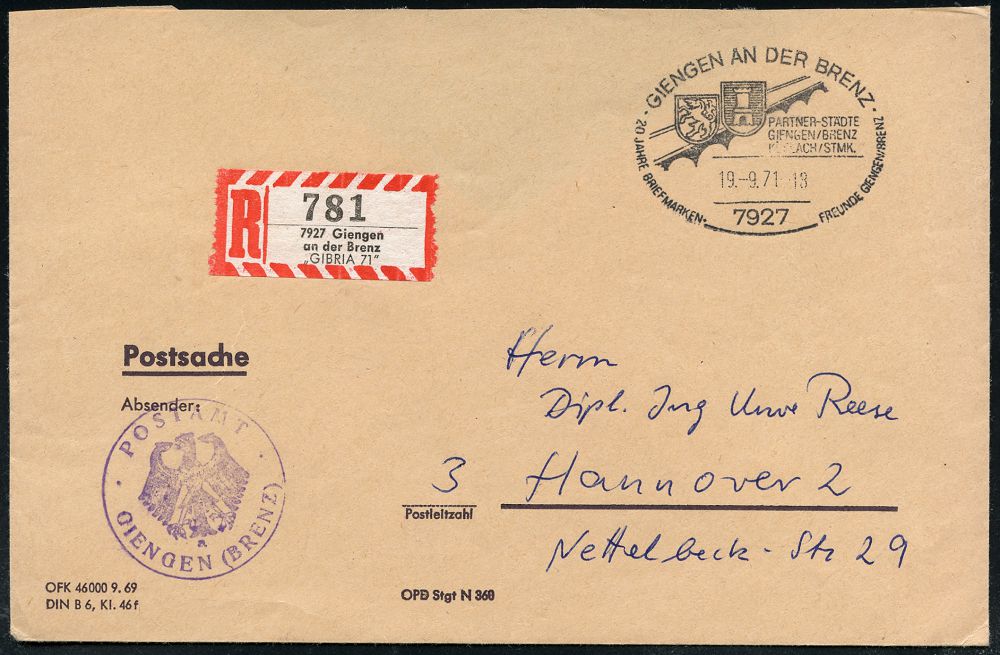 · GIENGEN AN DER BRENZ ·
PARTNER-STÄDTE
GIENGEN/BRENZ
KÖFLACH/STMK.
19.-9.71-18
7927
20 JAHRE BRIEFMARKEN-
FREUNDE GIENGEN/BRENZ
R
781
7927 Giengen
an der Brenz
„GIBRIA 71"
Postsache
Absender:
· POSTAMT ·
GIENGEN (BRENZ)
a
Herrn
Dipl. Ing Uwe Reese
3 Hannover 2
Postleitzahl
Nettelbeck-Str 29
OFK 46000 9.69
DIN B 6, Kl. 46f
OPD Stgt N 360